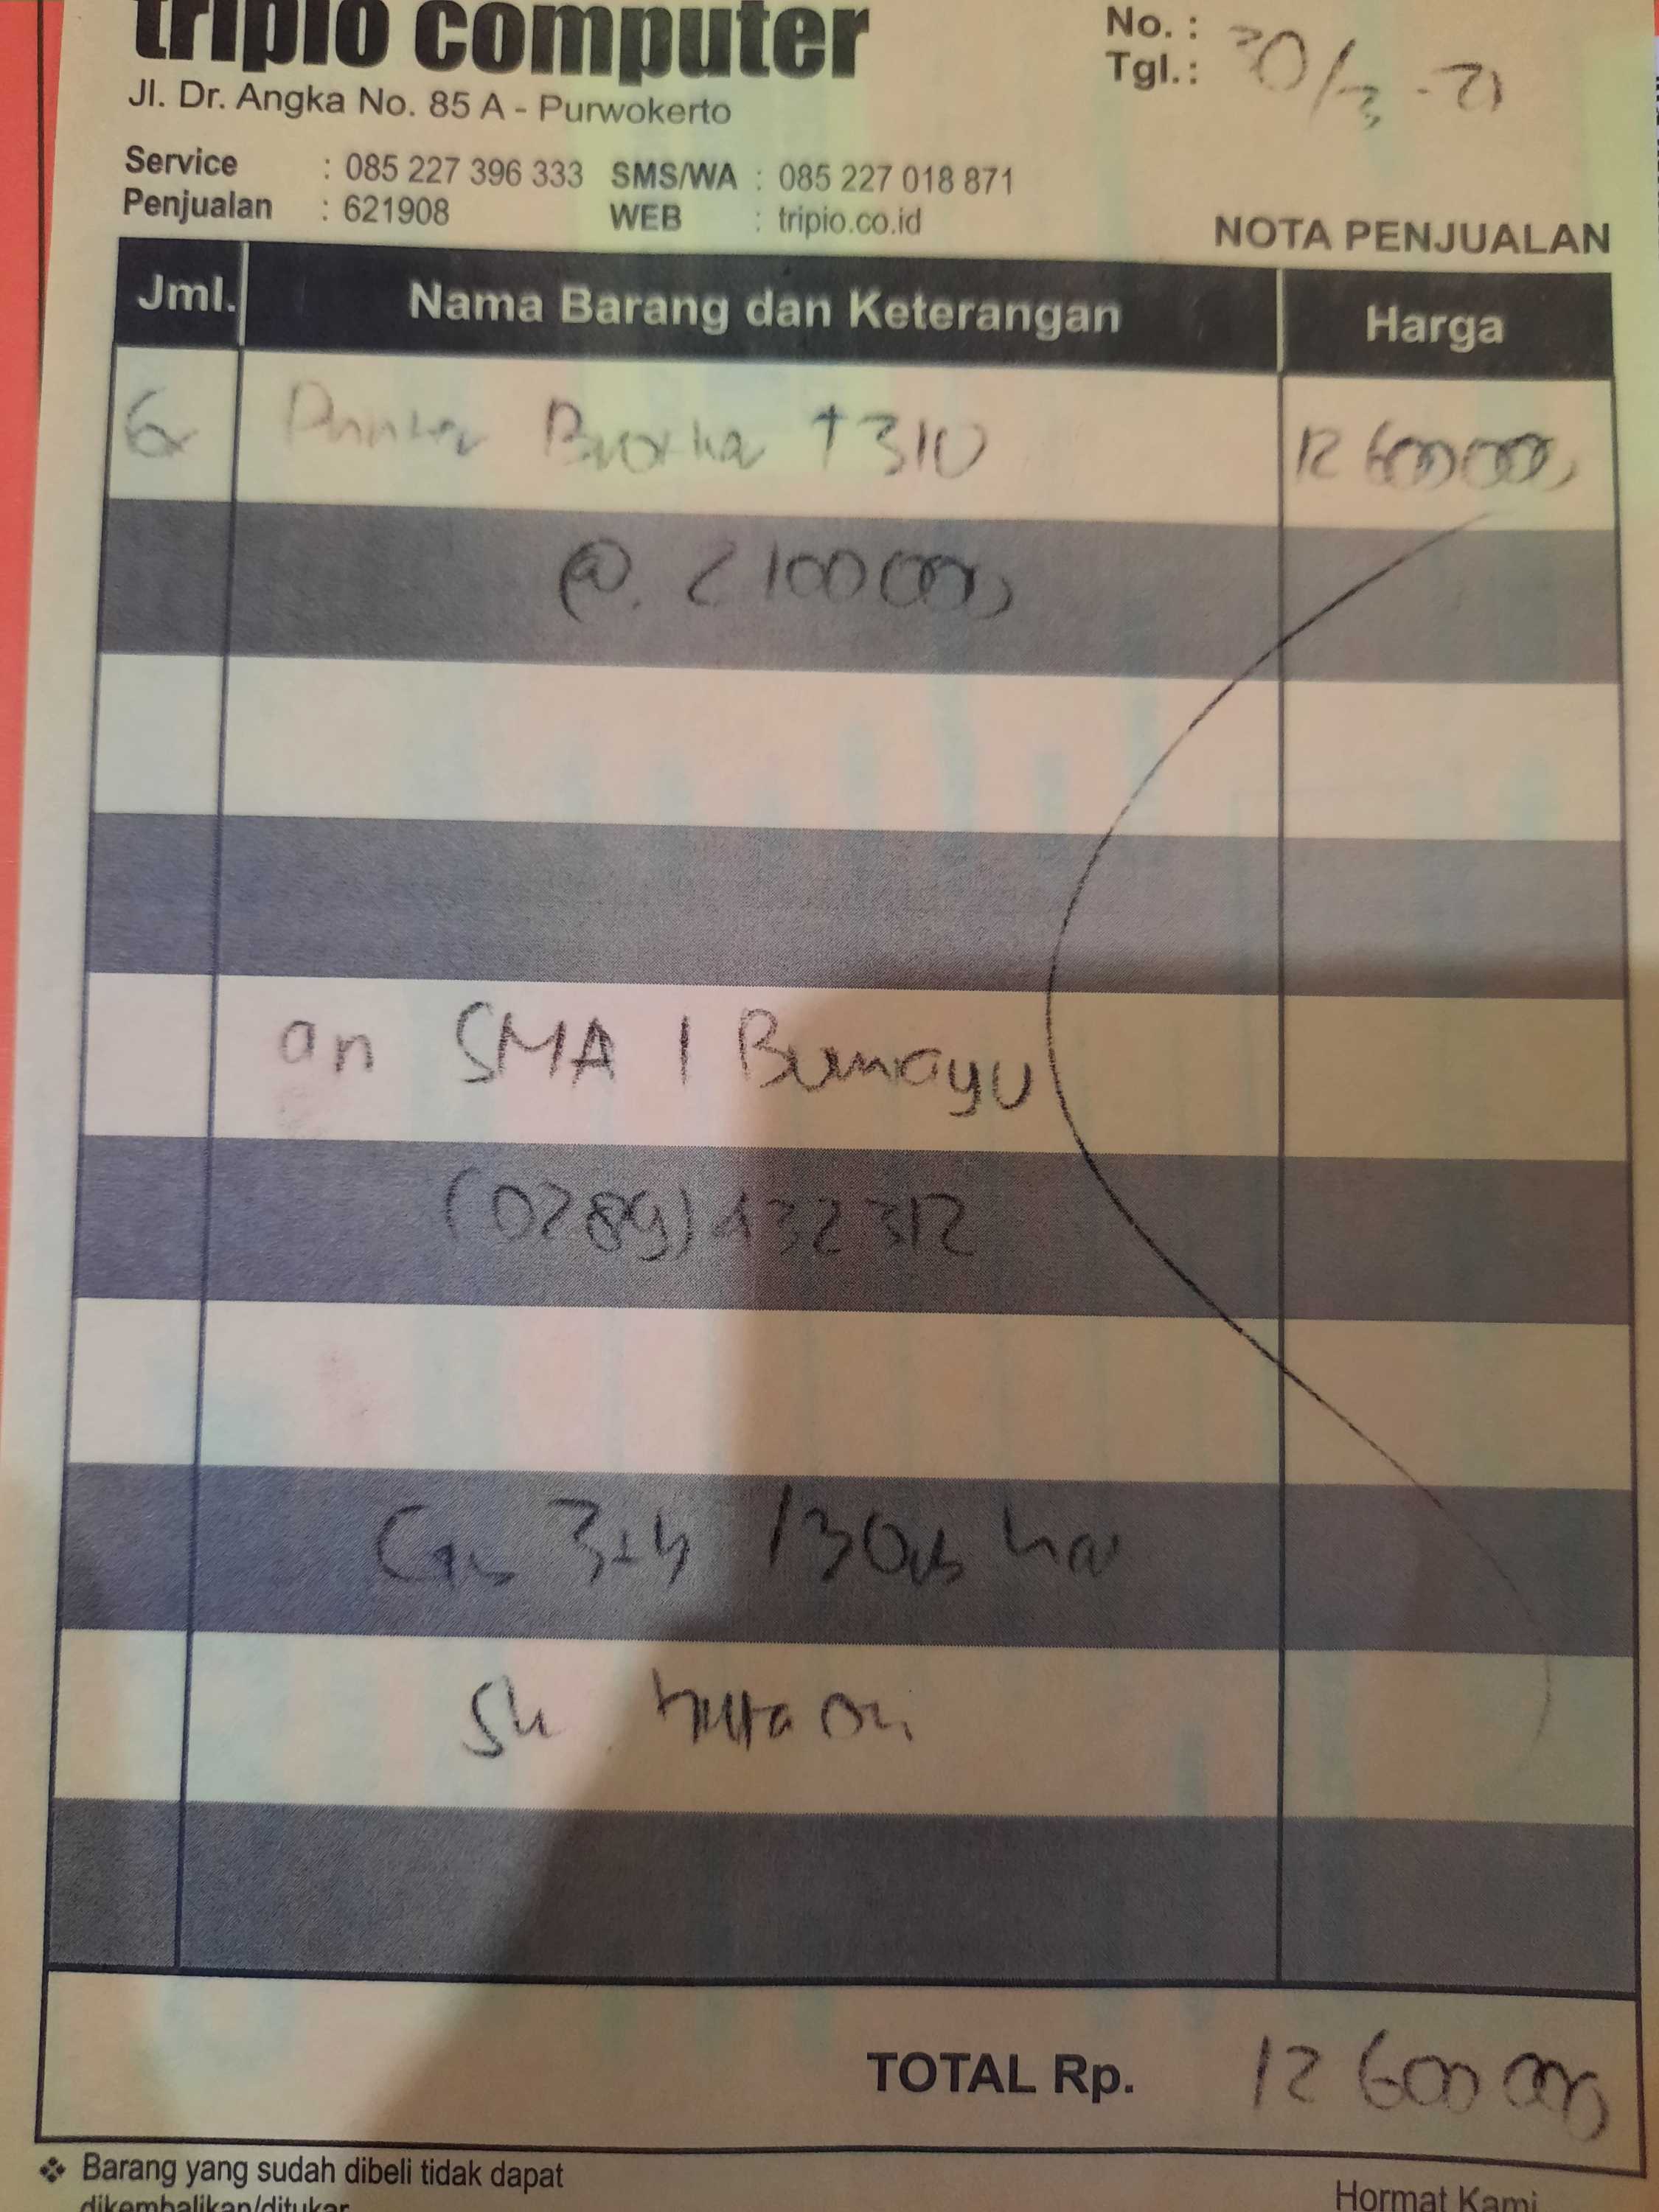 tripio computer
Jl. Dr. Angka No. 85 A - Purwokerto
No. :
Tgl. : 30/3 - 21
Service : 085 227 396 333 SMS/WA : 085 227 018 871
Penjualan : 621908 WEB : tripio.co.id
NOTA PENJUALAN
Jml. Nama Barang dan Keterangan Harga
6x Printer Brother T310 12 600 000,
@. 2 100 000,
an SMA 1 Bumiayu
(0289) 432312
TOTAL Rp. 12 600 000,
❖ Barang yang sudah dibeli tidak dapat
dikembalikan/ditukar
Hormat Kami